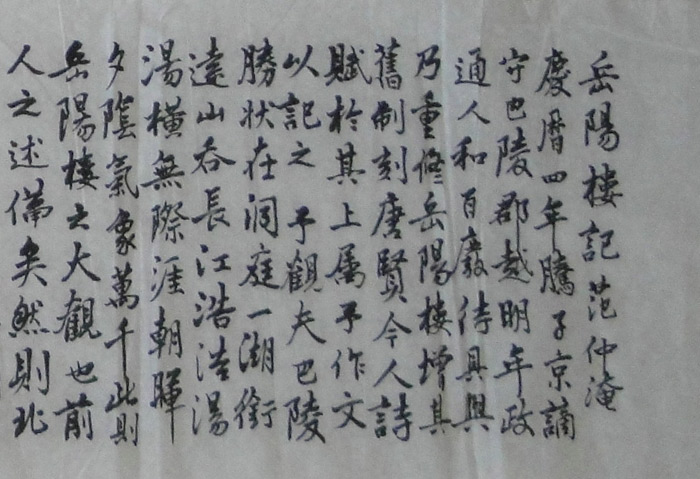 岳陽樓記范仲淹
慶曆四年騰子京謫
守巴陵郡越明年政
通人和百廢待具興
乃重修岳陽樓增其
舊制刻唐賢今人詩
賦於其上属予作文
以記之予觀夫巴陵
勝状在洞庭一湖銜
遠山吞長江浩浩湯
湯橫無際涯朝暉
夕陰氣象萬千此則
岳陽樓之大觀也前
人之述備矣然則北